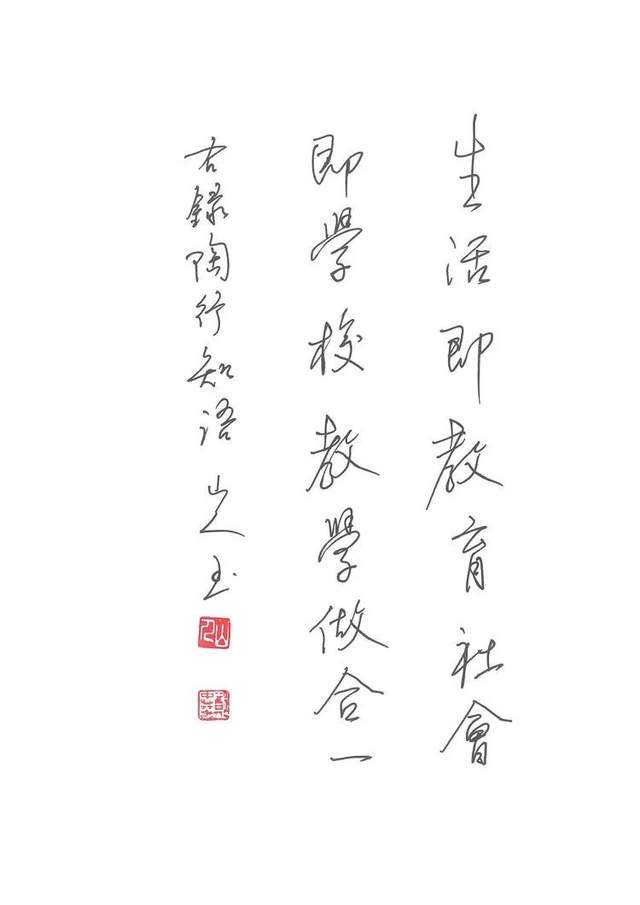 生活即教育社會
即學校教學做合一
右錄陶行知語 山人玉